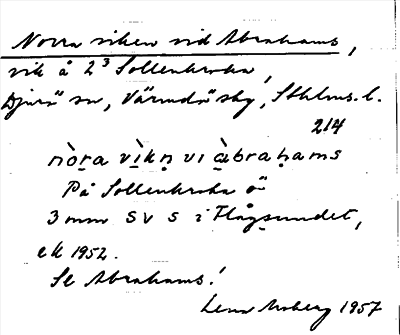 Norra viken vid Abrahams,
vik å 2³ Sollenkroka,
Djurö sn, Värmdö skg, Sthlms l.
214
nò̱ra vìkn̥ vi àbraḥams
På Sollenkroka ö
3 mm S V S i Flagsundet,
ek 1952.
Se Abrahams!
Lena Moberg 1957